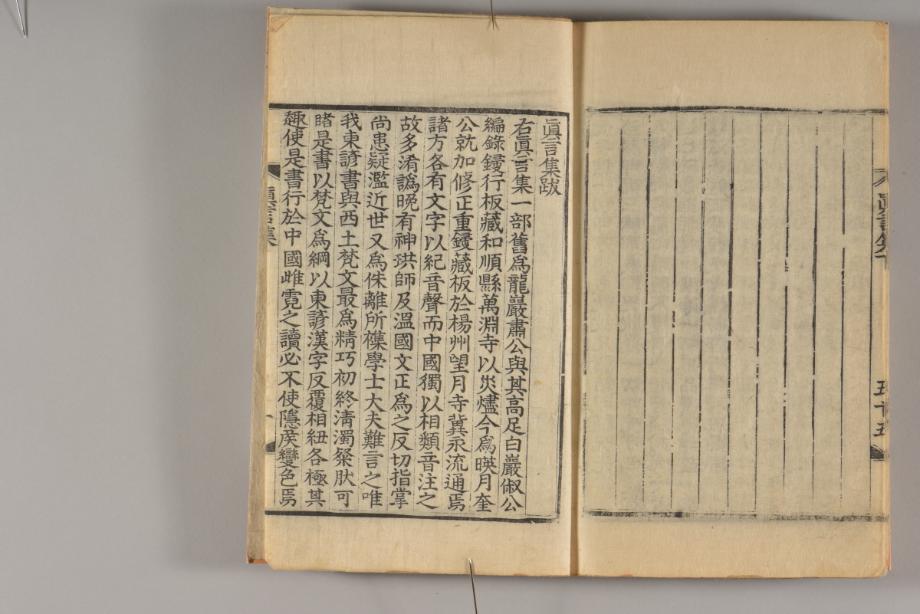 眞言集跋
右眞言集一部舊爲龍巖肅公與其高足白巖俶公
編錄鋟行板藏和順縣萬淵寺以災燼今爲暎月奎
公就加修正重鋟藏板於楊州望月寺冀永流通焉
諸方各有文字以紀音聲而中國獨以相類音注之
故多淆譌晚有神珙師及溫國文正爲之反切指掌
尚患疑濫近世又爲侏離所襍學士大夫難言之唯
我東諺書與西土梵文最爲精巧初終淸濁粲肰可
睹是書以梵文爲綱以東諺漢字反覆相紐各極其
趣使是書行於中國雌霓之讀必不使隱矦變色焉
眞言集